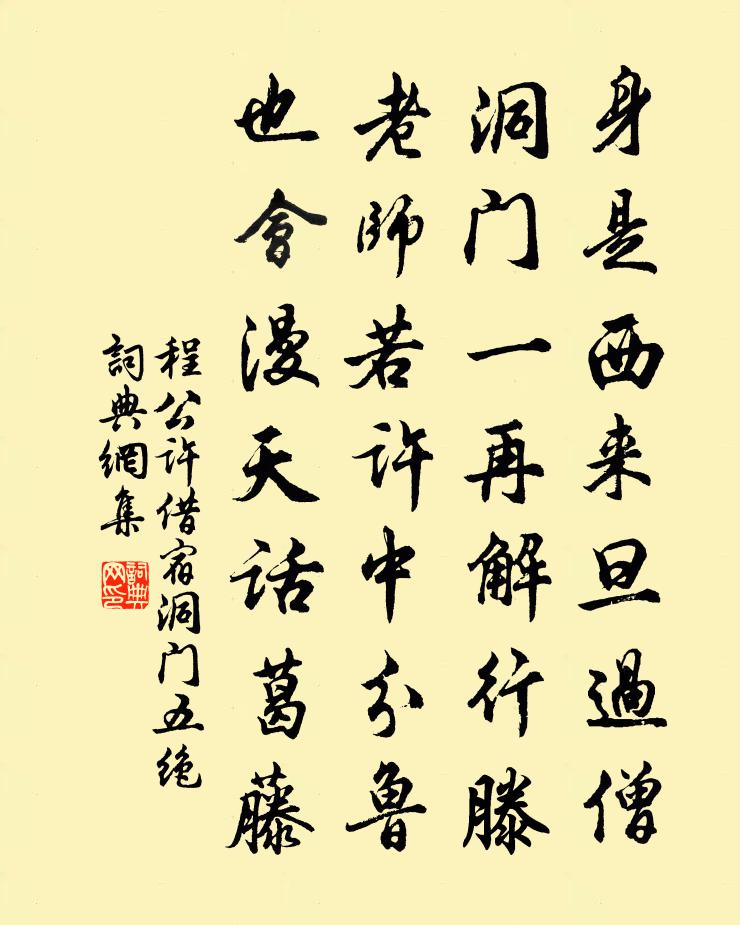 身是西来旦過僧
洞门一再解行滕
老師若许中分魯
也會漫天话葛藤
程公许借宿洞门五绝
詞典網集
詞典网印